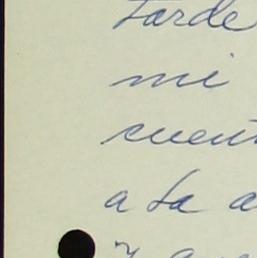 tarde
mi
cuent
a la a
y a